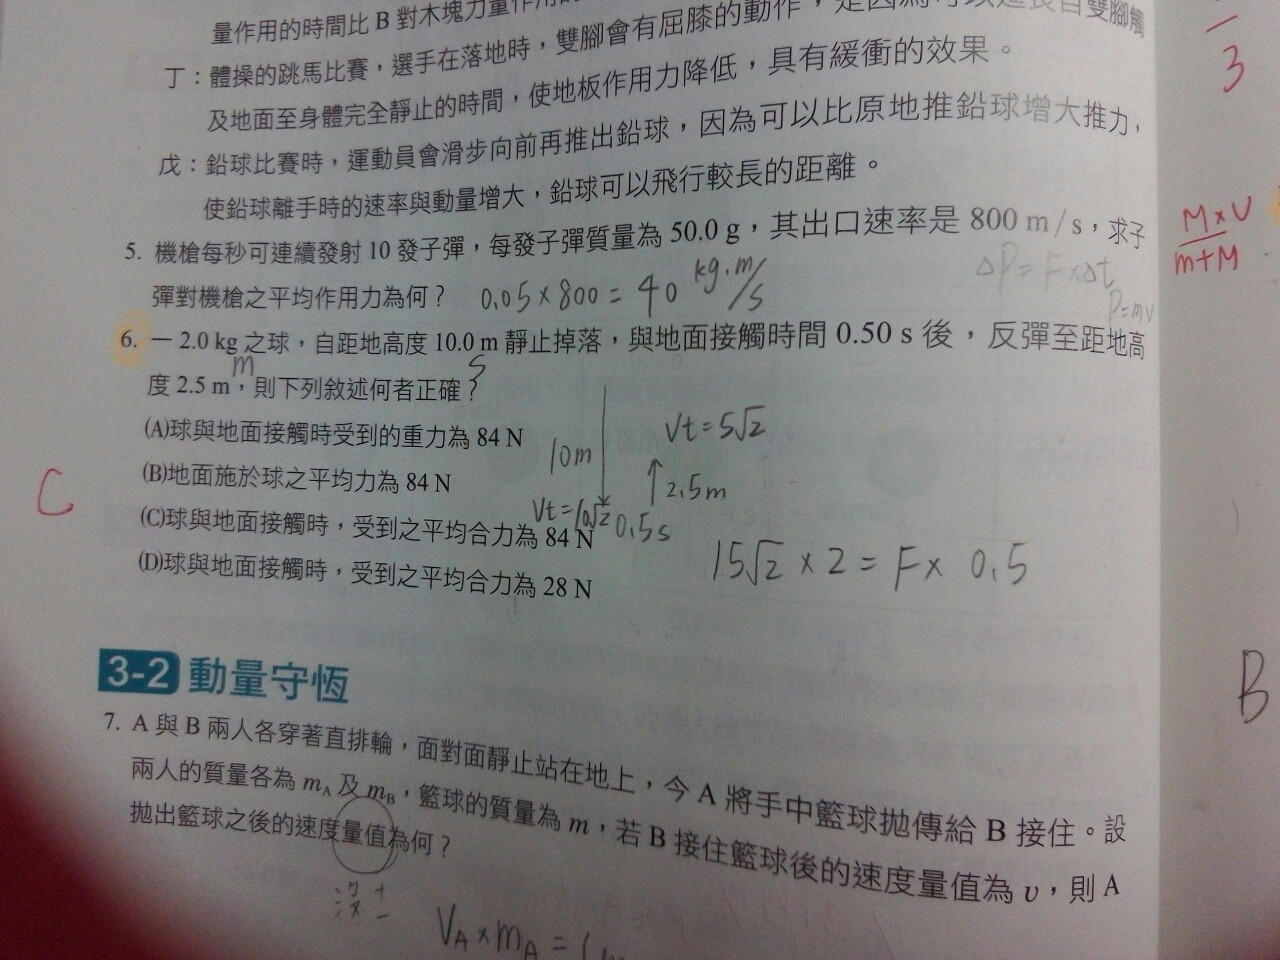 量作用的時間比 B 對木塊力量作用的
丁：體操的跳馬比賽，選手在落地時，雙腳會有屈膝的動作，是因為可以延長自雙腳觸
及地面至身體完全靜止的時間，使地板作用力降低，具有緩衝的效果。
戊：鉛球比賽時，運動員會滑步向前再推出鉛球，因為可以比原地推鉛球增大推力，
使鉛球離手時的速率與動量增大，鉛球可以飛行較長的距離。
3
5. 機槍每秒可連續發射 10 發子彈，每發子彈質量為 50.0 g，其出口速率是 800 m/s，求子
彈對機槍之平均作用力為何？
0.05×800=40 kg.m/s
ΔP=F×Δt
P=mv
M×V
m+M
6. 一 2.0 kg 之球，自距地高度 10.0 m 靜止掉落，與地面接觸時間 0.50 s 後，反彈至距地高
m
s
度 2.5 m，則下列敘述何者正確？
(A)球與地面接觸時受到的重力為 84 N
(B)地面施於球之平均力為 84 N
(C)球與地面接觸時，受到之平均合力為 84 N
(D)球與地面接觸時，受到之平均合力為 28 N
C
10m
Vt=5√2
2.5m
Vt=10√2
0.5s
15√2×2=F×0.5
3-2 動量守恆
7. A 與 B 兩人各穿著直排輪，面對面靜止站在地上，今 A 將手中籃球拋傳給 B 接住。設
兩人的質量各為 mA 及 mB，籃球的質量為 m，若 B 接住籃球後的速度量值為 υ，則 A
拋出籃球之後的速度量值為何？
沒
+
−
VA×mA=(
B